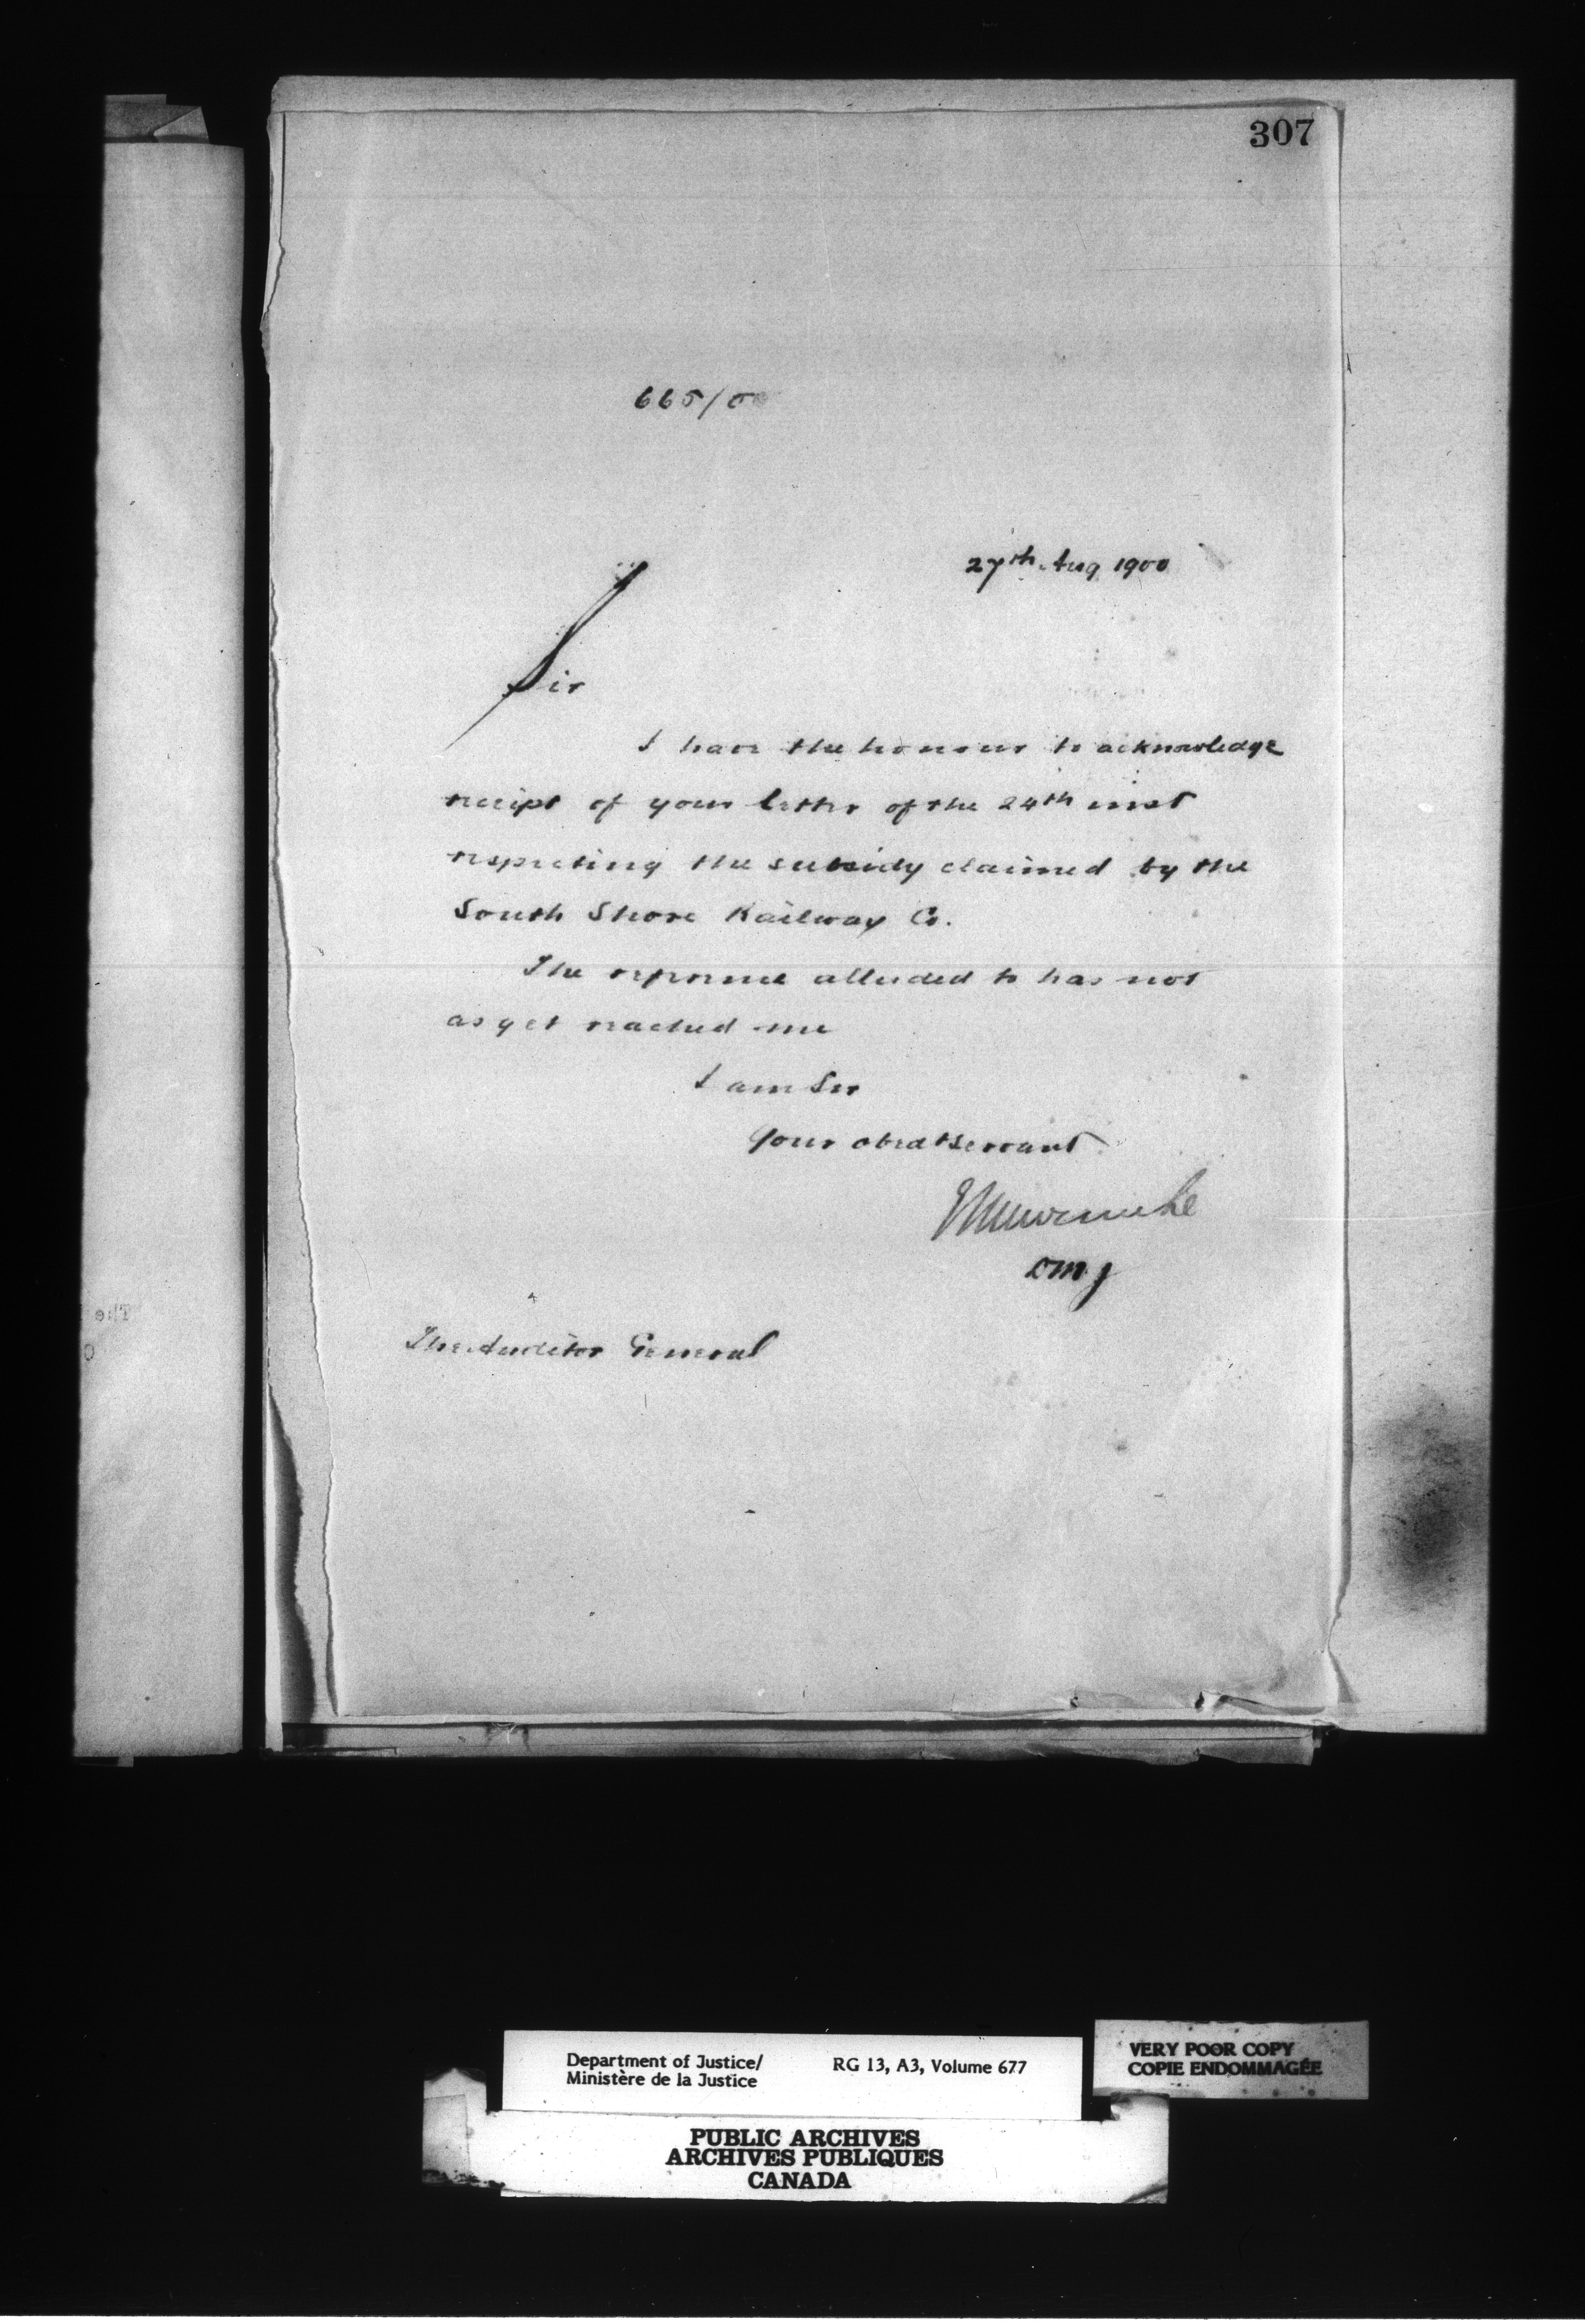 307
665/00
27th Aug 1900
Sir
I have the honour to acknowledge
receipt of your letter of the 24th inst
respecting the subsidy claimed by the
South Shore Railway Co.
The reference alluded to has not
as yet reached me
I am Sir
Your obedt servant
E L Newcombe
DMJ
The Auditor General
Department of Justice/
Ministère de la Justice
RG 13, A3, Volume 677
VERY POOR COPY
COPIE ENDOMMAGÉE
PUBLIC ARCHIVES
ARCHIVES PUBLIQUES
CANADA